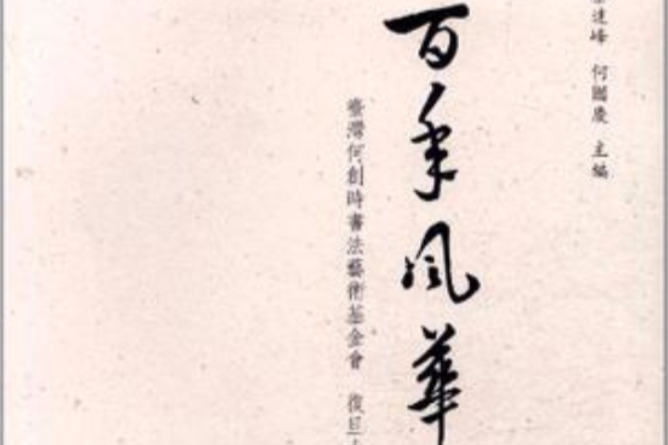 達峰 何國慶 主編
百年風華
臺灣何創時書法藝術基金會 復旦